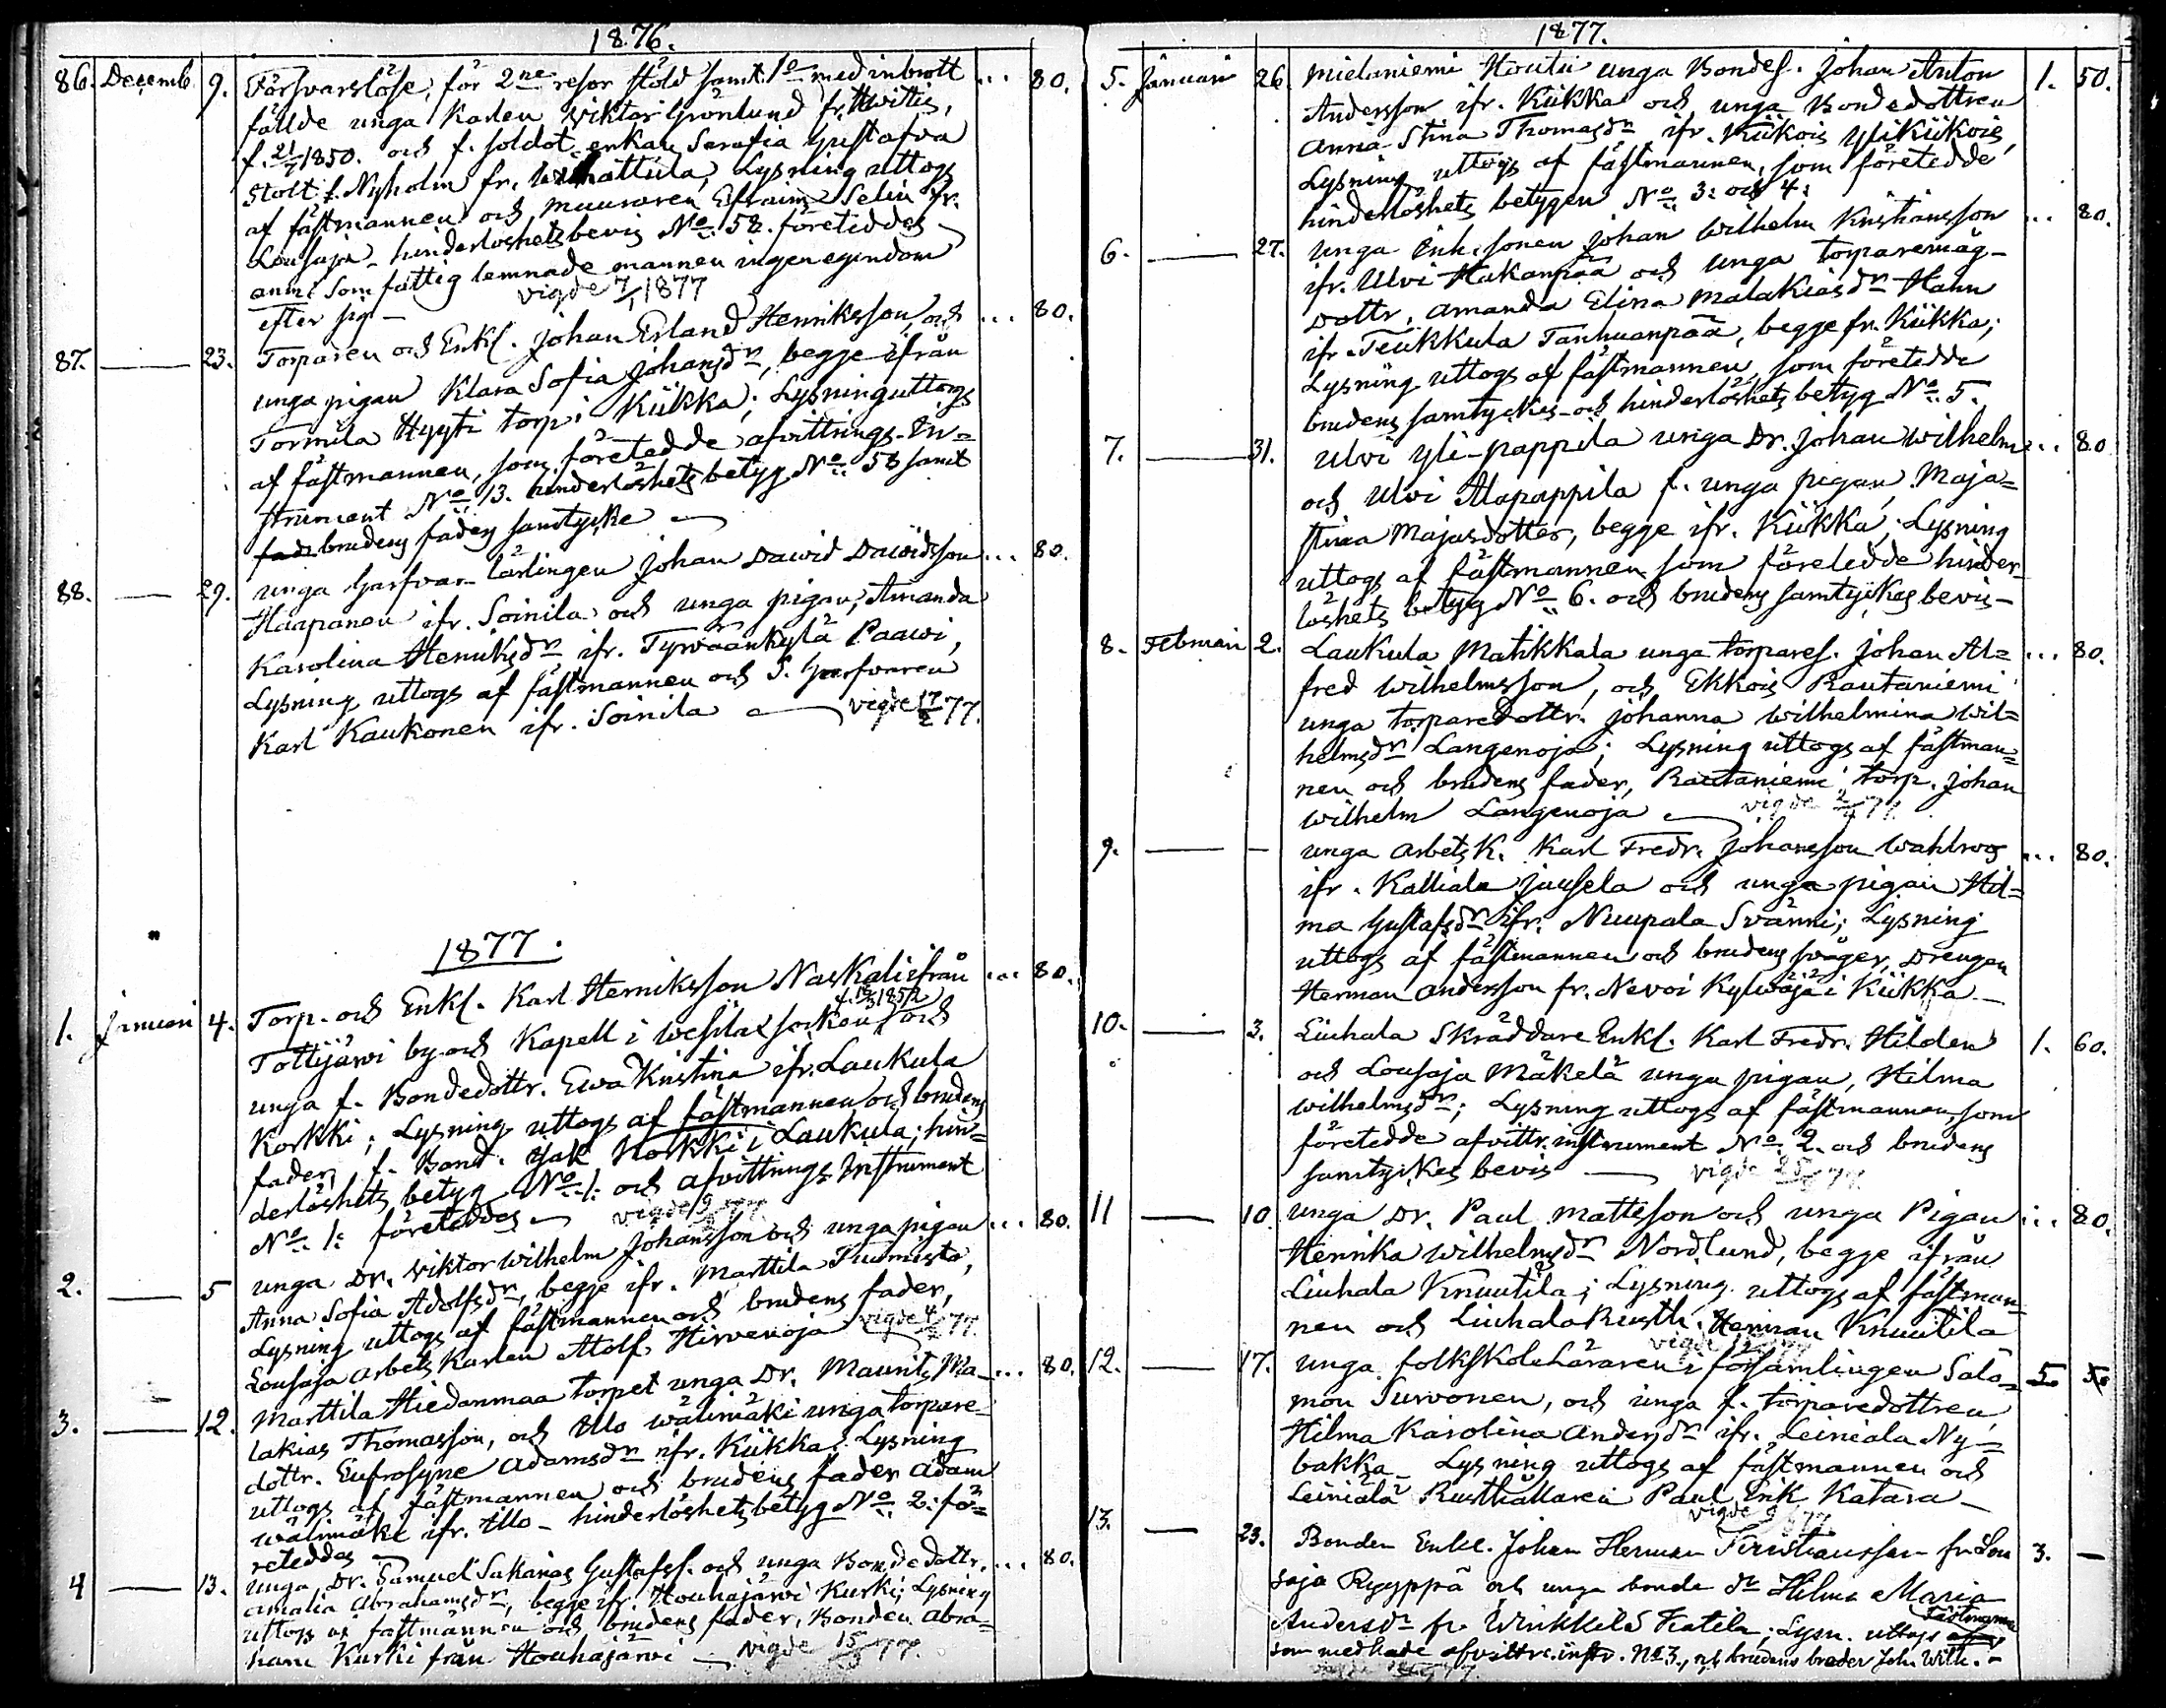 1876.
86. Decemb. 9. Försvarslöse, för 2ne resor stöld samt 1o med inbrott ... 80.
fällde unga karlen Wiktor Grönlund fr. Hvittis,
f. 21/7 1850. och f. soldat enkan Serafia Gustafva
Stolt f. Nyholm fr. Lysning uttogs
af fästmannen och muuraren Efraim Selin fr.
Lousaja - hinderlöshetsbevis No 58. företeddes
anm: Som fattig lemnade mannen ingen egendom
efter sig - vigde 7/1 1877
87. — 23. Torparen och Enkl. Johan Erland Henriksson och ... 80.
unga pigan Klara Sofia Johansdr, begge ifrån
Tormila Hyyti torp i Kiikka; Lysning uttogs
af fästmannen, som företedde afvittrings-In-
strument No 13. hinderlöshets betyg No 58 samt
brudens faders samtycke —
88. — 29. unga Garfvar-lärlingen Johan Dawid Dawidsson ... 80.
Haapanen ifr. Soinila och unga pigan, Amanda
Karolina Henriksdr ifr. Tyrväänkylä Paawi,
Lysning uttogs af fästmannen och S. Garfvaren
Karl Kaukonen ifr. Soinila — vigde 17/2 77.
1877.
1. Januari 4. Torp. och Enkl. Karl Henriksson Naskali ifrån ... 80.
f. 1852
Tottijärwi by och Kapell i Wesilax socken, och
unga f. Bondedottr. Ewa Kristina ifr. Laukula
Korkki; Lysning uttogs af fästmannen och brudens
fader, f. Bond. Isak Korkki i Laukula; hin-
derlöshets betyg No 1: och afvittrings Instrument
No 1: företeddes — vigde 77.
2. — 5 unga Dr. Viktor Wilhelm Johansson och unga pigan ... 80.
Anna Sofia Adolfsdr, begge ifr. Marttila Tuomisto,
Lysning uttogs af fästmannen och brudens fader,
Lousaja arbets karlen Adolf Hirvenoja vigde 4/2 77.
3. — 12. Marttila Hiedanmaa torpet unga Dr. Maurits Ma- ... 80.
lakias Thomasson, och Illo Wälimäki unga torpare-
dottr. Eufrosyne Adamsdr ifr. Kiikka; Lysning
uttogs af fästmannen och brudens fader Adam
Wälimäki ifr. Illo - hinderlöshets betyg No 2: fö-
reteddes —
4 — 13. unga Dr. Samuel Sakarias Gustafss. och unga Bondedottr. ... 80.
Amalia Abrahamsdr, begge ifr. Houhajärwi Kurki; Lysning
uttogs af fästmannen och brudens fader, Bonden Abra-
ham Kurki från Houhajärwi — vigde 15/ 77.
1877.
5. Januari 26. Mielaniemi Houtu unga Bondes. Johan Anton 1. 50.
Andersson ifr. Kiikka och unga Bondedottren
Anna Stina Thomasdr ifr. Kiikois Ylikiikois,
Lysning uttogs af fästmannen, som företedde
hinderlöshets betygen No 3: och 4:
6. — 27. unga Inh. sonen Johan Wilhelm Kristiansson ... 80.
ifr. Ulvi Hakanpää och unga torparemåg-
Dottr, Amanda Elina Malakiasdr Hahn
ifr. Teukkula Tanhuanpää, begge fr. Kiikka;
Lysning uttogs af fästmannen, som företedde
brudens samtyckes- och hinderlöshets betyg No 5.
7. — 31. Ulvi Yli-pappila unga Dr. Johan Wilhelm ... 80
och Ulvi Alapappila f. unga pigan, Maja-
stina Majasdotter, begge ifr. Kiikka; Lysning
uttogs af fästmannen som företedde hinder-
löshets betyg No 6. och brudens samtyckes bevis —
8. Februari 2. Laukula Matikkala unga torpares. Johan Al- ... 80.
fred Wilhelmsson, och Ekkois Rautaniemi
unga torparedottr. Johanna Wilhelmina Wil-
helmsdr Langenoja; Lysning uttogs af fästman-
nen och brudens fader, Rautaniemi torp. Johan
Wilhelm Langenoja — vigde 77.
9. — — unga Arbets K. Karl Fredr. Johansson Wahlroos ... 80.
ifr. Kalliala Jausela och unga pigan Hil-
ma Gustafsdr ifr. Nuupala Svänni; Lysning
uttogs af fästmannen och brudens svåger, Drengen
Herman Andersson fr. Nevoi Kylwäjä i Kiikka —
10. — 3. Liuhala Skräddare Enkl. Karl Fredr. Hilden 1. 60.
och Lousaja Mäkelä unga pigan, Hilma
Wilhelmsdr; Lysning uttogs af fästmannen, som
företedde afvittr. instrument No 2. och brudens
samtyckes bevis — vigde 25/ 77.
11 — 10. unga Dr. Paul Mattsson och unga Pigan ... 80.
Henrika Wilhelmsdr Nordlund, begge ifrån
Liuhala Knuutila; Lysning uttogs af fästman-
nen och Liuhala Rusth. Herman Knuutila
vigde
12. — 17. unga folkskoleläraren i församlingen Salo- 5. 5.
mon Survonen, och unga f. torparedottren
Hilma Karolina Andersdr ifr. Leiniälä Ny-
bakka — Lysning uttogs af fästmannen och
Leiniälä Rusthållaren Paul Erik Katara —
vigde 77
13. — 23. Bonden Enkl. Johan Herman Kristiansson fr. Lou 3. —
saja Ryyppä och unga bonde dr Hilma Maria
Andersdr fr. Winkkilä Katila; Lysn. uttogs af fästmannen
som med hade afvittr. instr. No 3., och brudens broder Joh. Wilh. -